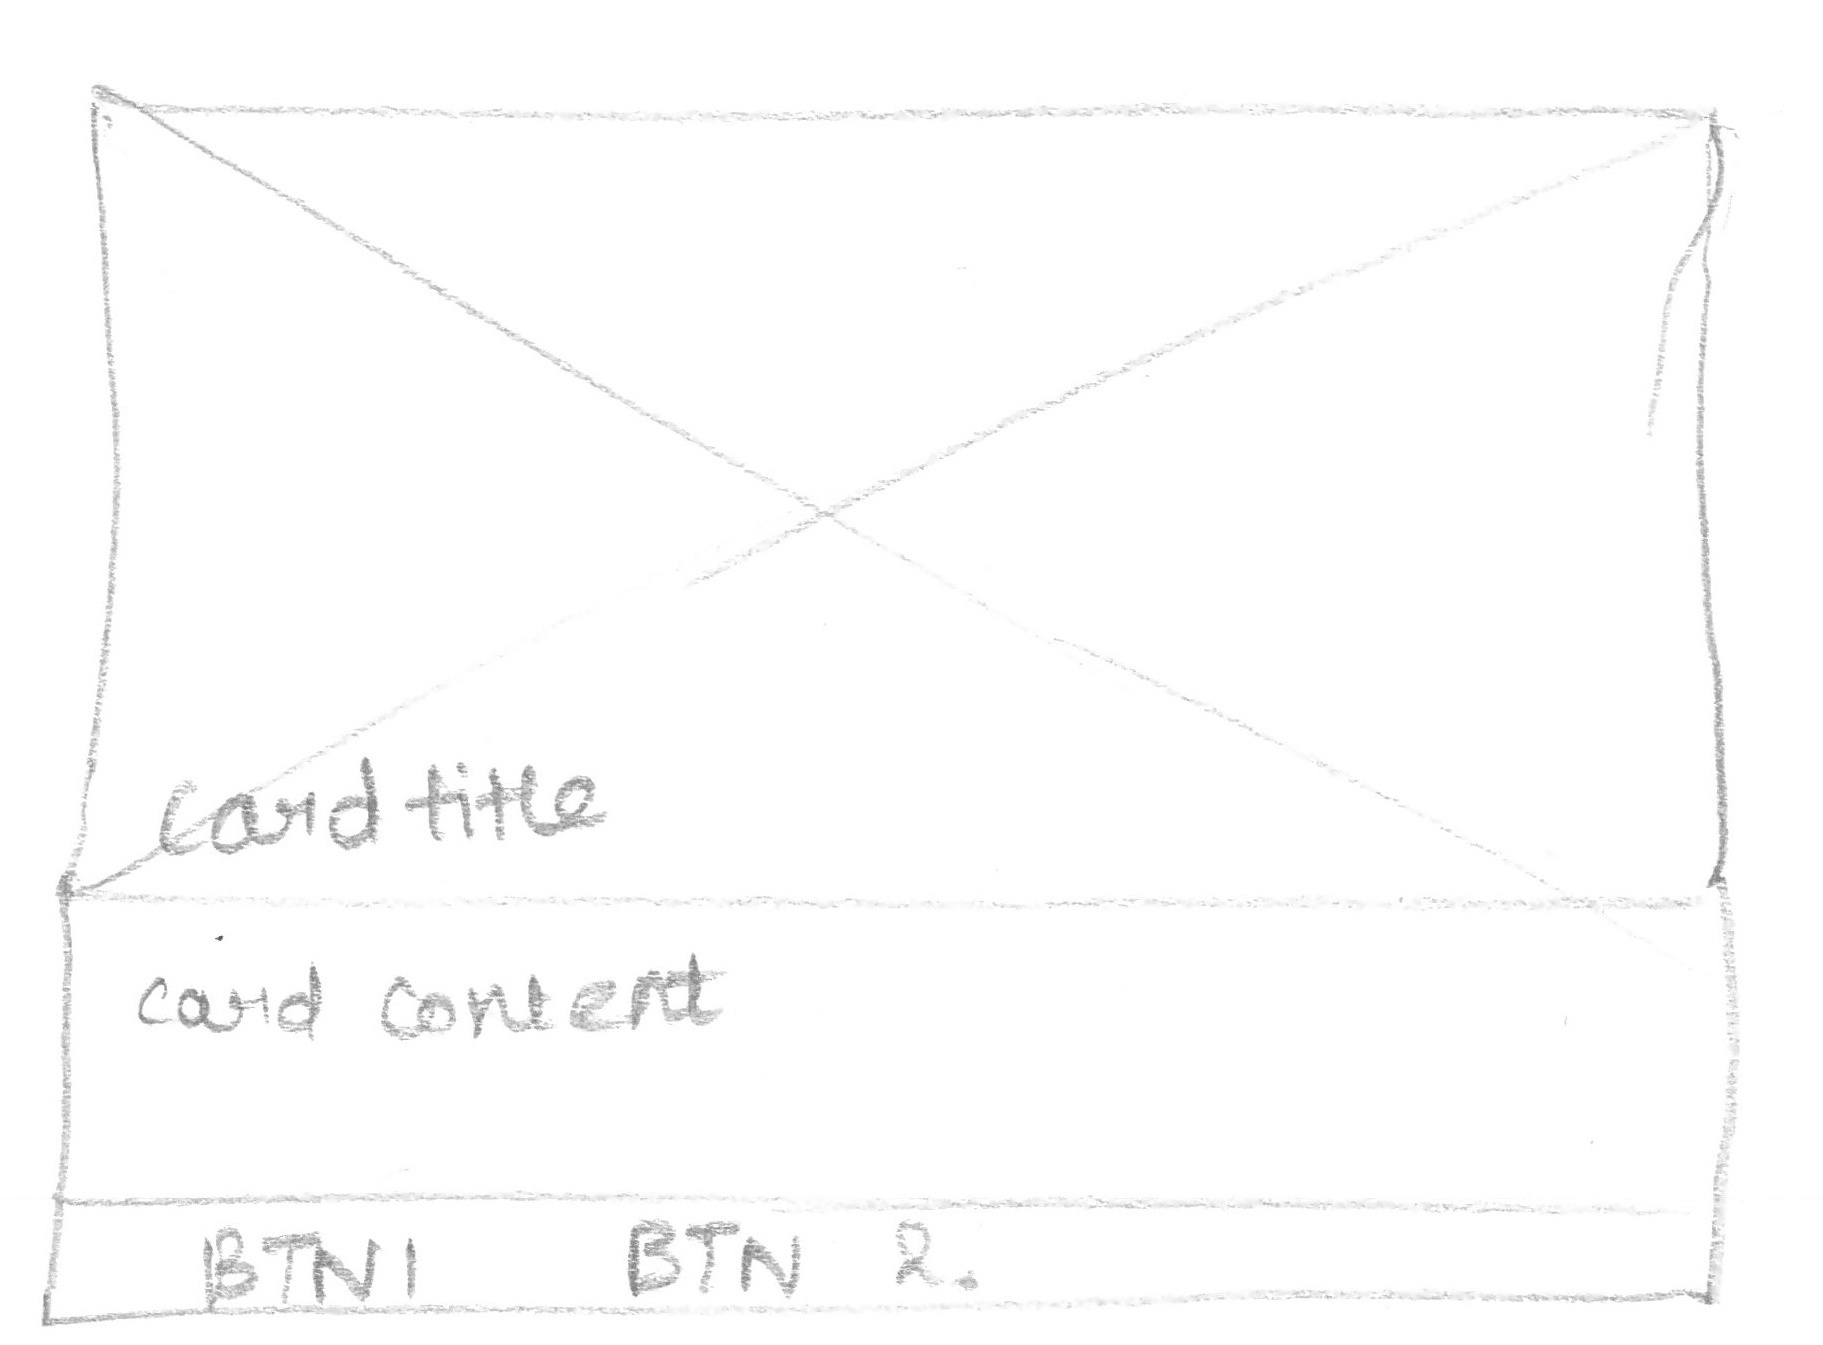 Card title
card content
BTN1 BTN 2.